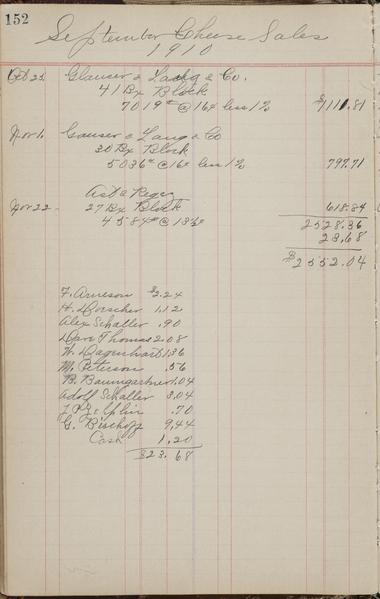 152
September Cheese Sales
1910
Oct 25 Glauser & Lang & Co.
41 Bx Block
7019# @ 16¢ less 1% $1111.81
Nov 1. Gauser & Lang & Co
30 Bx Block
5036# @ 16¢ less 1% 797.71
Ast &
Nov 22 - 27 Bx Block 618.84
4584# @ 13½¢ 2528.36
23.68
$2552.04
F. Arneson $2.24
H. Doescher 1.12
Alex Schaller .90
Dave Thomas 2.08
W. Dagenhart 1.36
M. Peterson .56
B. Baumgartner 1.04
Adolf Schaller 3.04
.70
G. Bischoff 9.44
Cash 1.20
$23.68